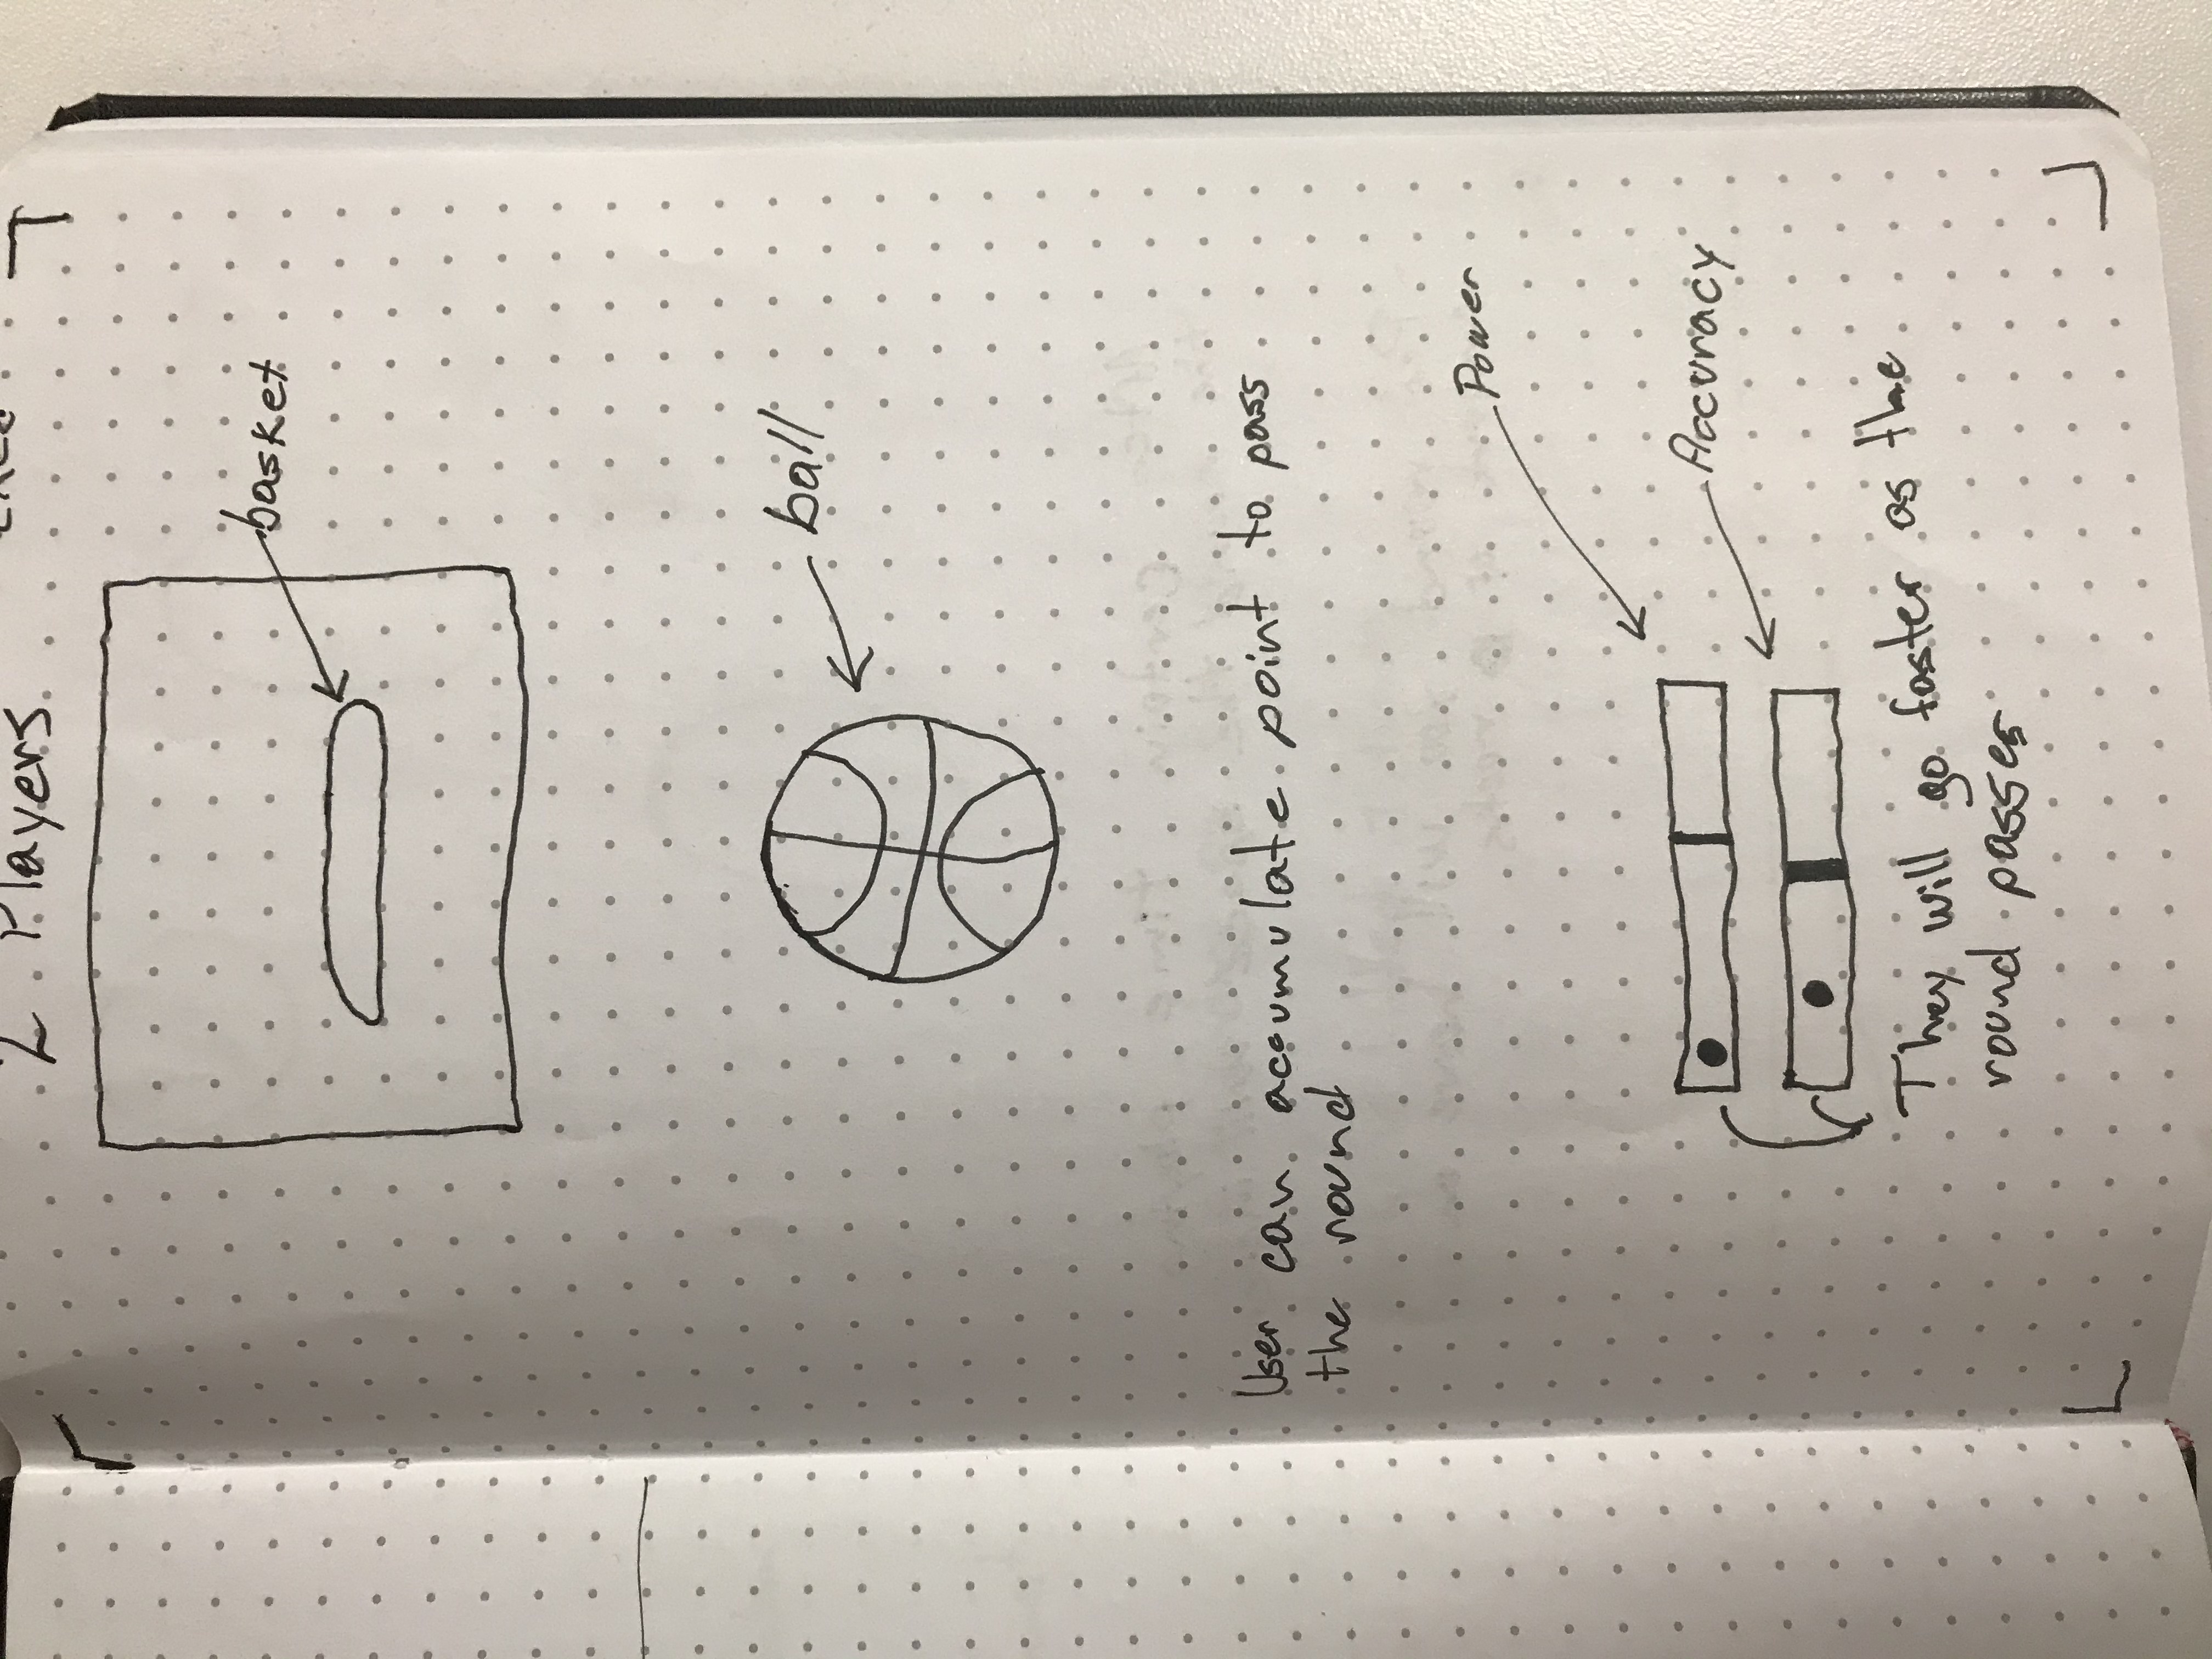 2 Players
basket
ball
User can accumulate point to pass
the round
Power
Accuracy
They will go faster as the
round passes